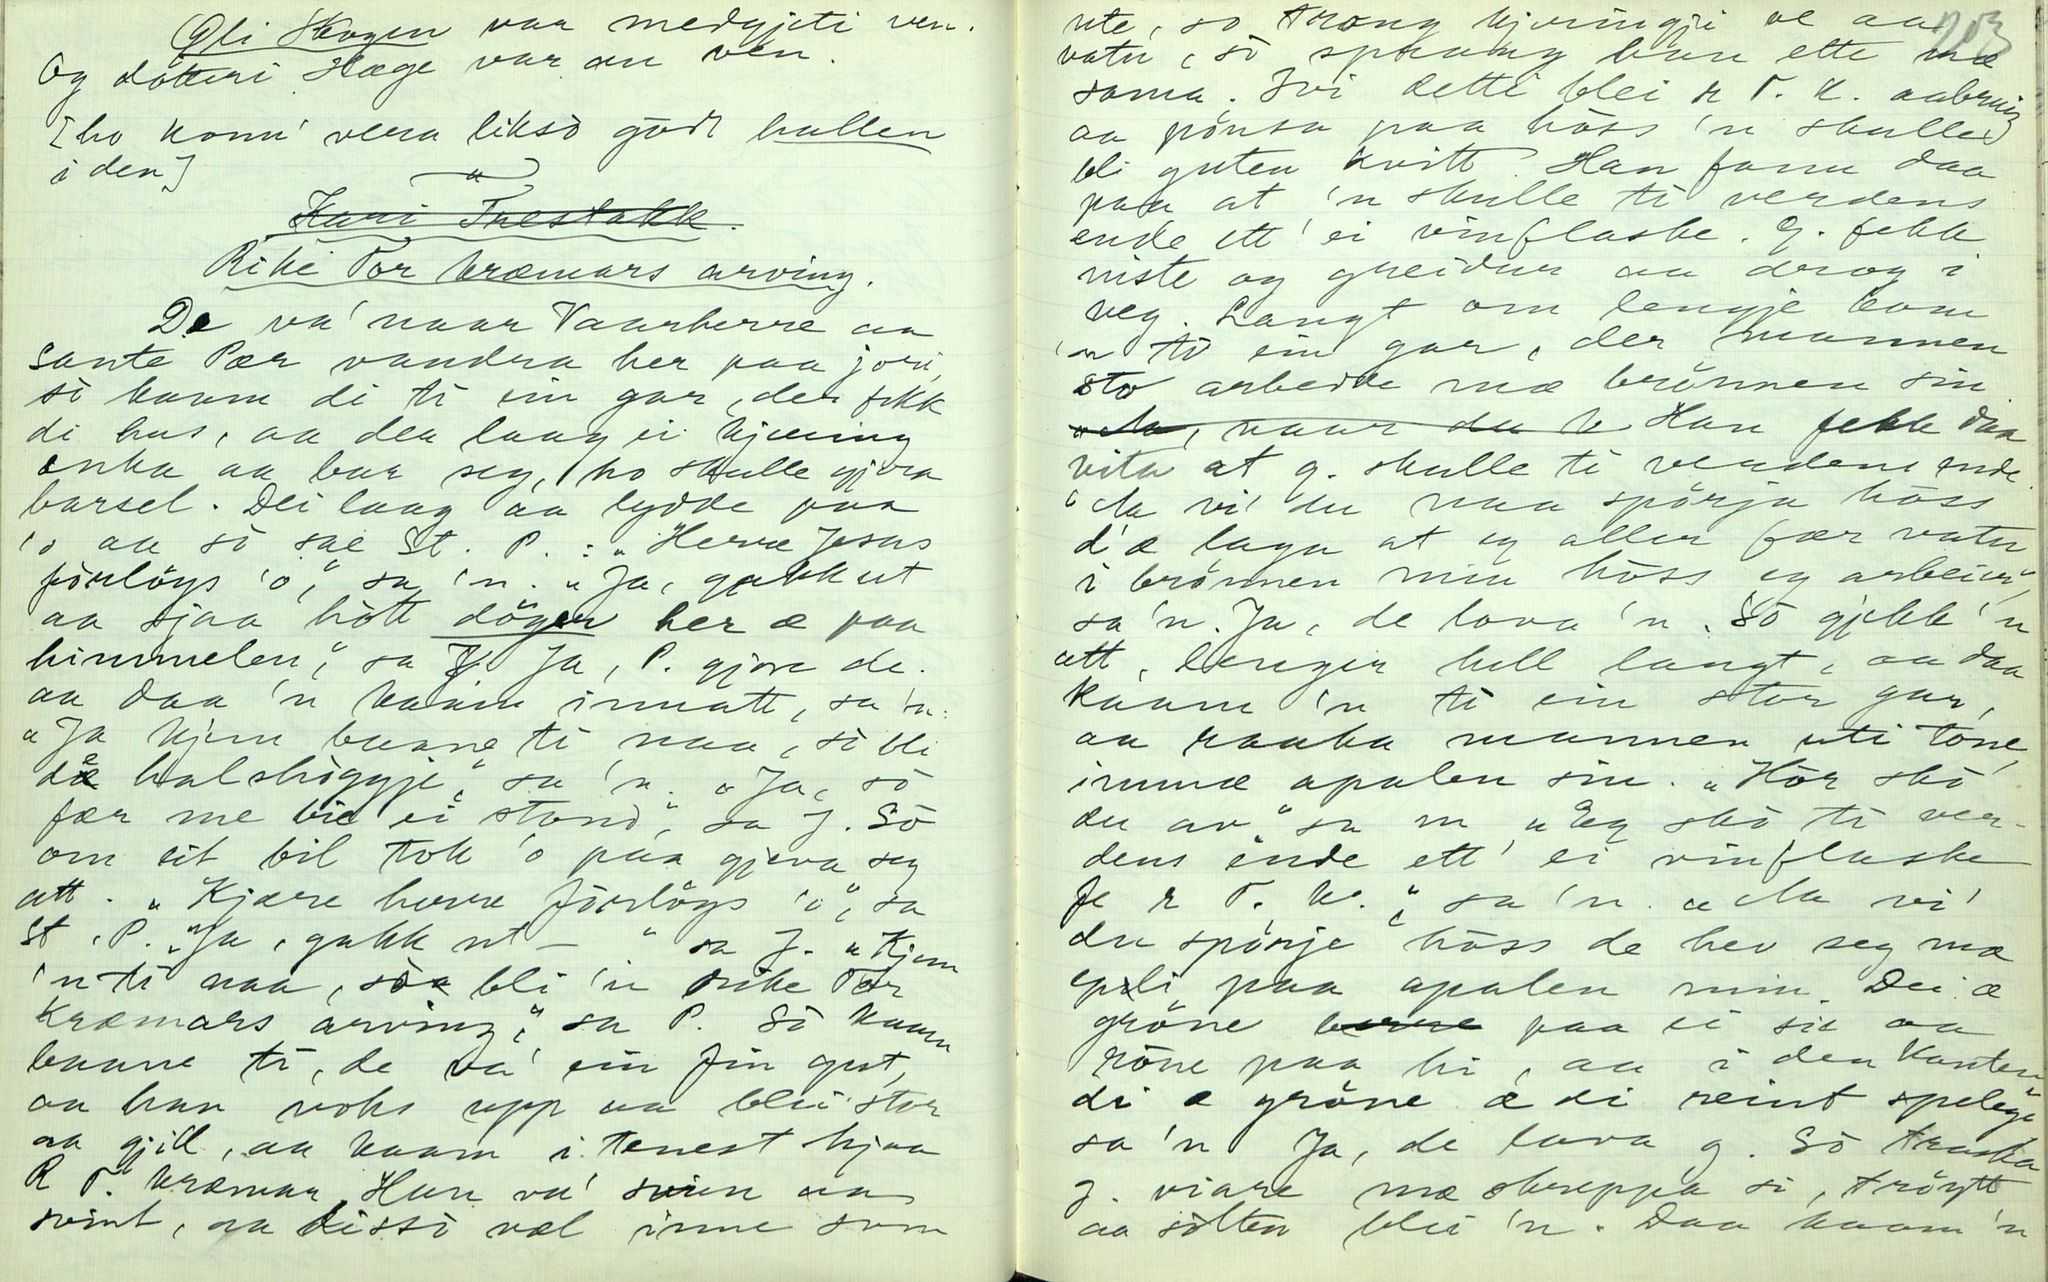 Oli Skogen var medgjeti ven.
Og dotteri Hæge var au ven.
[ho konn' vera liksò godt hallen
i den]
Kari Trestakk.
Rike Tor kræmars arving.
De va' naar Vaarherre aa
Sante Pær vandra her paa jori,
sò kaam di ti ein gar, der fekk
di hus, aa der laag ei kjæring
onka aa bar seg, ho skulle gjera
barsel. Dei laag aa lydde paa
'o aa sò sae St. P.: "Herre Jesus
förlöys 'o," sa 'n. "Ja, gakk ut
aa sjaa hòtt dögen her æ paa
himmelen," sa J. Ja, P. gjore de.
aa daa 'n kaam innatt, sa 'n:
"Ja kjem baane ti naa, sò bli
de halshöggje," sa 'n. "Ja, sò
fær me bie ei stond," sa J. Sò
om eit bil tok 'o paa gjeva seg
att. "Kjære herre förlöys 'o", sa
St. P. "Ja, gakk ut – " sa J. "Kjem
'n ti naa, sò bli 'n rike Tor
Kræmars arving," sa P. Sò kaam
baane ti, de va' ein fin gut,
aa han voks upp aa blei stor
aa gjill, aa kaam i tenest hjaa
R T. kræmar. Han va' svien aa
svint, aa dissò væl inne som
203
ute, so trong kjeringji ve aa
vatn, sò sprang han ette mæ
sama. Ivi dette blei R T. K. aabruig
aa pönsa paa hòss 'n skulle
bli guten kvitt. Han fann daa
paa at 'n skulle ti verdens
ende ett' ei vinflaske. G. fekk
niste og greidur aa drog i
veg. Langt om lengje kom
'n ti ein gar, der mannen
sto arbeidde mæ brönnen sin
Han fekk daa
vita at g. skulle ti verdens ende.
"Aa vi' du naa spörja hòss
d'æ laga at eg aller fær vatn
i brönnen min hòss eg arbeier,"
sa 'n. Ja, de lova 'n. Sò gjekk 'n
att, lenger hell langt, aa daa
kaam 'n ti ein stor gar,
aa raaka mannen uti tone,
innmæ apalen sin. "Hòr skò
du av" sa 'n "Eg skò ti ver-
dens ende ett' ei vinflaske
fe R T. K.," sa 'n. "Aa vi'
du spörje" hòss de hev seg mæ
epli paa apalen min. Dei æ
gröne paa ei sie aa
röne paa hi, aa i den kanten
di æ gröne æ di reint spelege"
sa 'n Ja, de lova g. Sò traska
g. viare mæ skreppa si, tröytt
aa sòlten blei 'n. Daa kaam 'n